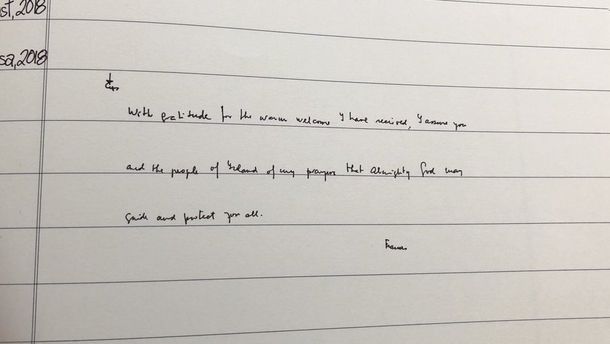 st, 2018
sa, 2018
With gratitude for the warm welcome I have received, I assure you
and the people of Ireland of my prayers that Almighty God may
guide and protect you all.
Francis